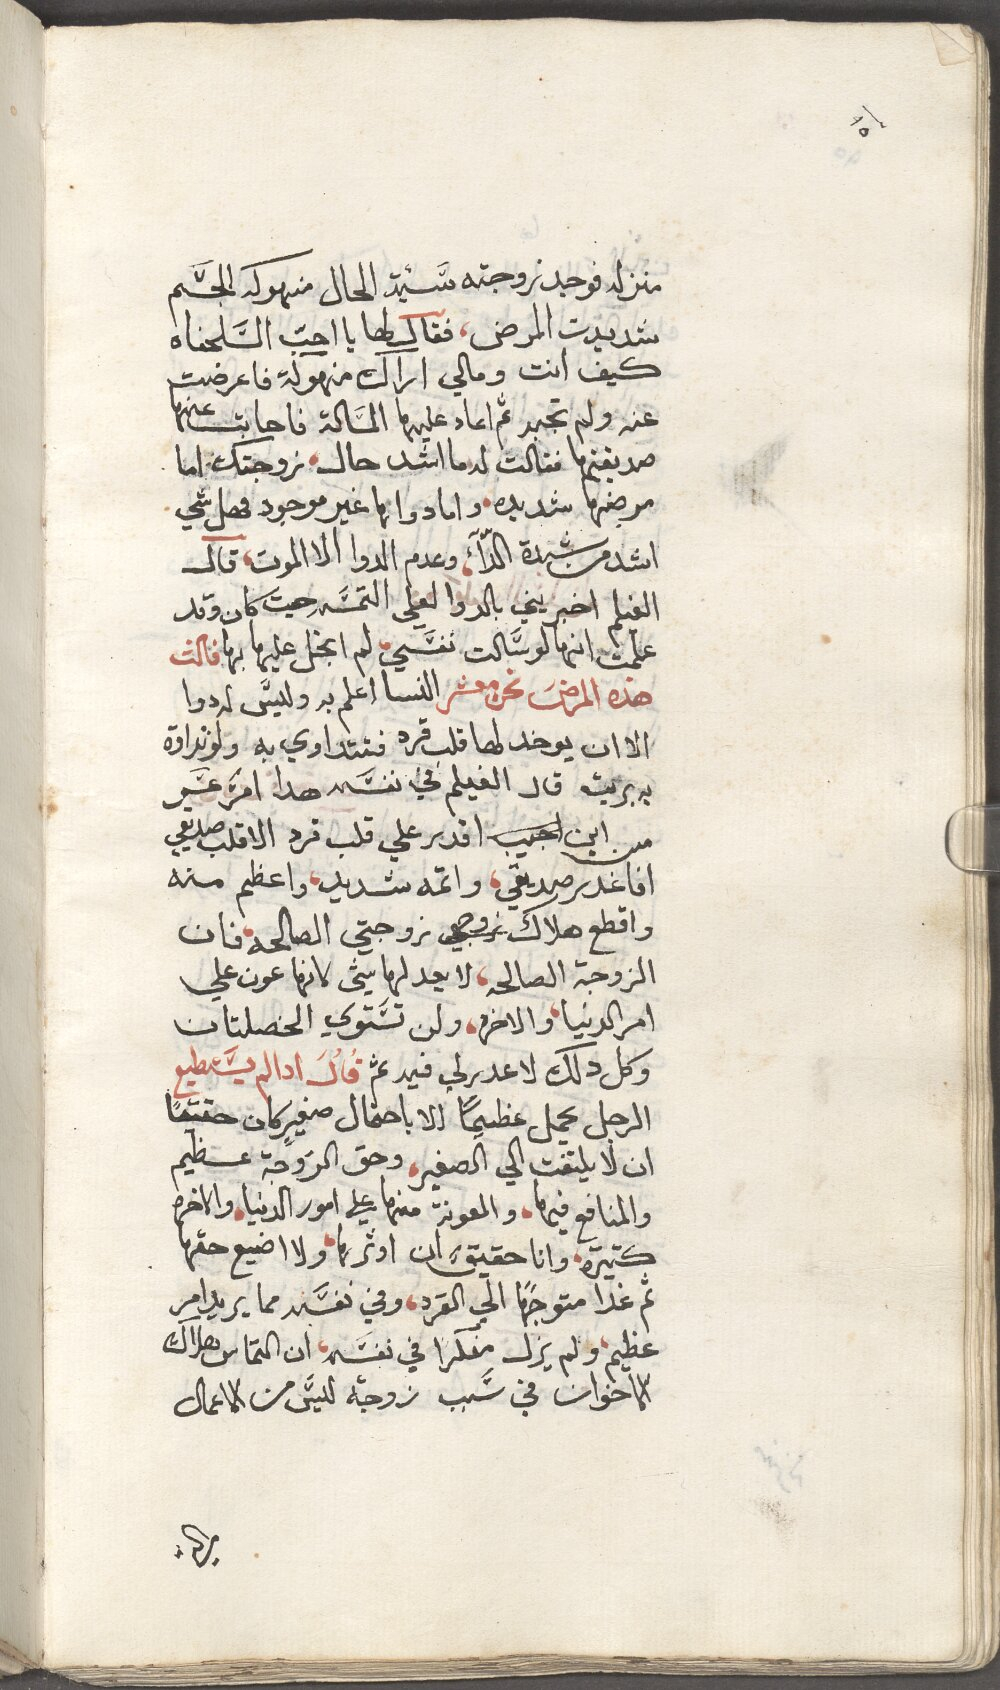 منزله فوجد زوجته سيئة الحال منهوكه الجسم
شديدت المرض، فقال لها يا احب السلحفاه
كيف انت ومالي اراك منهوكة فاعرضت
عنه ولم تجبه ثم اعاد عليها المسالة فاجابت عنها
صديقتها فقالت له ما اشد حال زوجتك، اما
مرضها شديده، واما دواها غير موجود فهل شي
اشد من شدة الداء، وعدم الدوا الا الموت، قال
الغيلم اخبريني بالدوا لعلي التمسه حيث كان وقد
علمت انها لو سالت نفسي، لم ابخل عليها بها قالت
هذه المرض نحن معشر النسا اعلم به وليس له دوا
الا ان يوخد لها قلب قرد فتتداوي به ولو تداوة
به بريت قال الغيلم في نفسه هدا امر عسير
من اين اقدر علي قلب قرد الا قلب صديقي
افاغدر صديقي، واثمه شديد، واعظم منه
واقطع هلاك زوجتي الصالحه، فان
الزوجة الصالحه، لا يعدلها شي لانها عون علي
امر الدنيا، والاخره، ولن تستوي الخصلتان
وكل دلك لا عدر لي فيه ثم قال ادا لم يستطيع
الرجل يحمل عظيما الا باحتمال صغير كان حقيقا
ان لا يلتفت الي الصغير، وحق الزوجة عظيم
والمنافع فيها، والمعونة منها علي امور الدنيا، والاخره
كتيرة، وانا حقيق ان اوثرها، ولا اضيع حقها
ثم غدا متوجها الي القرد، وفي نفسه مما يريد امر
عظيم، ولم يزل مفكرا في نفسه، ان التماس هلاك
الاخوان في سبب زوجة ليس من الاعمال